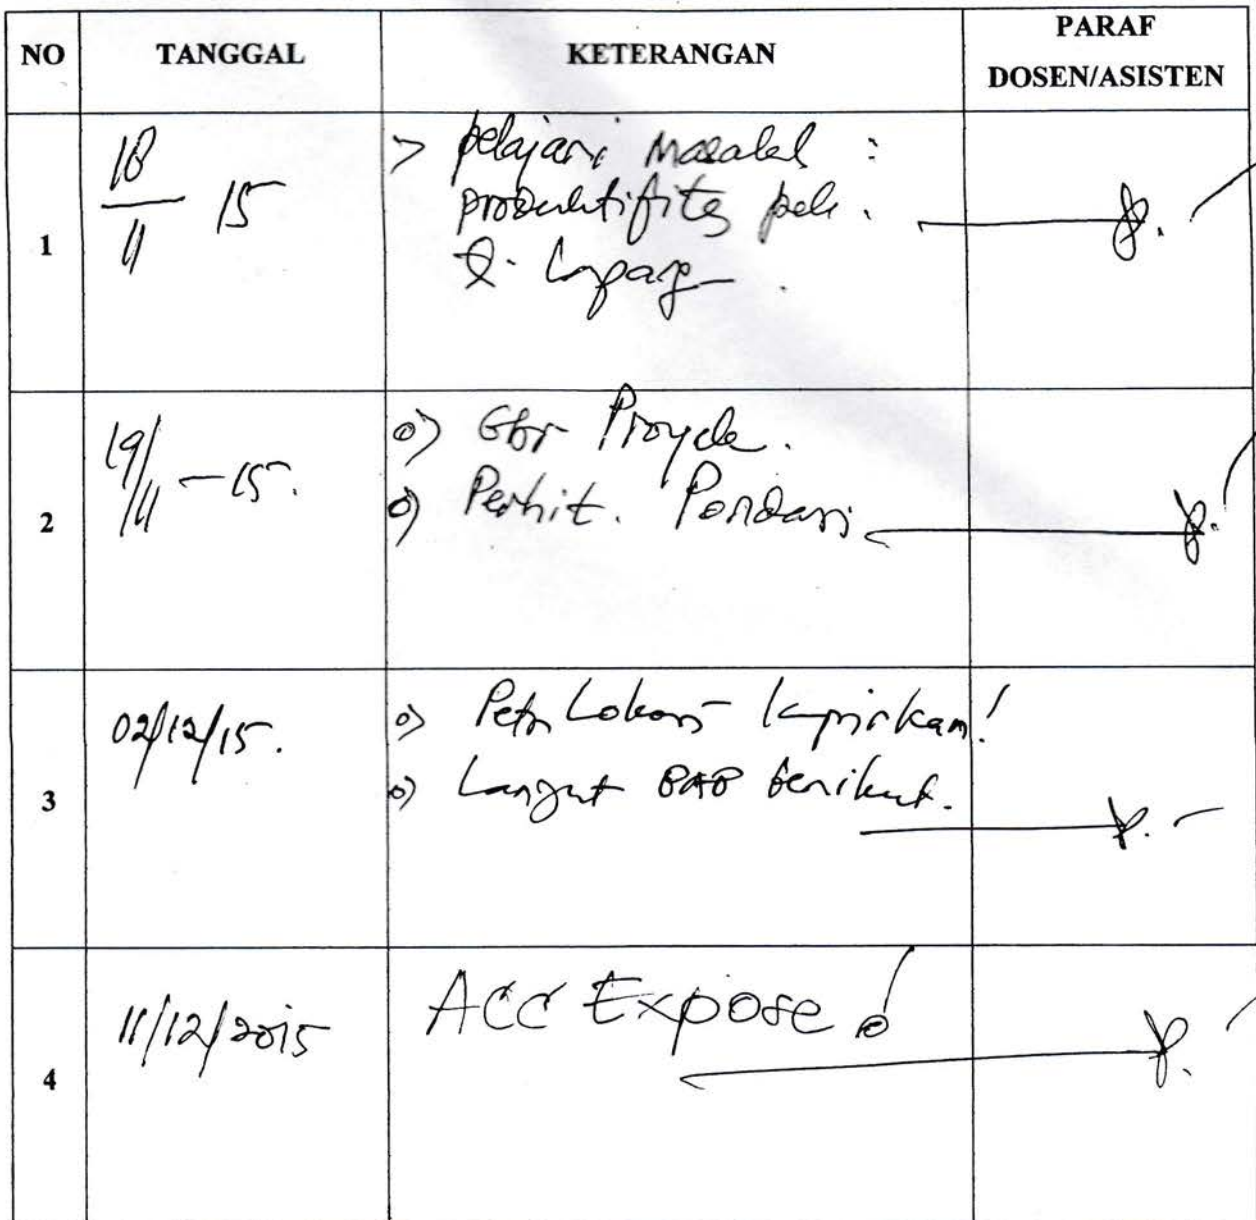 NO TANGGAL KETERANGAN PARAF DOSEN/ASISTEN
1
18/11 15
> pelajari masalah :
produktifitas pek.
2
19/11 - 15.
o) Gbr Proyek.
o) Perhit. Pondasi
3
02/12/15.
o) Peta Lokasi
o) Lanjut BAB berikut.
4
11/12/2015
ACC Expose !